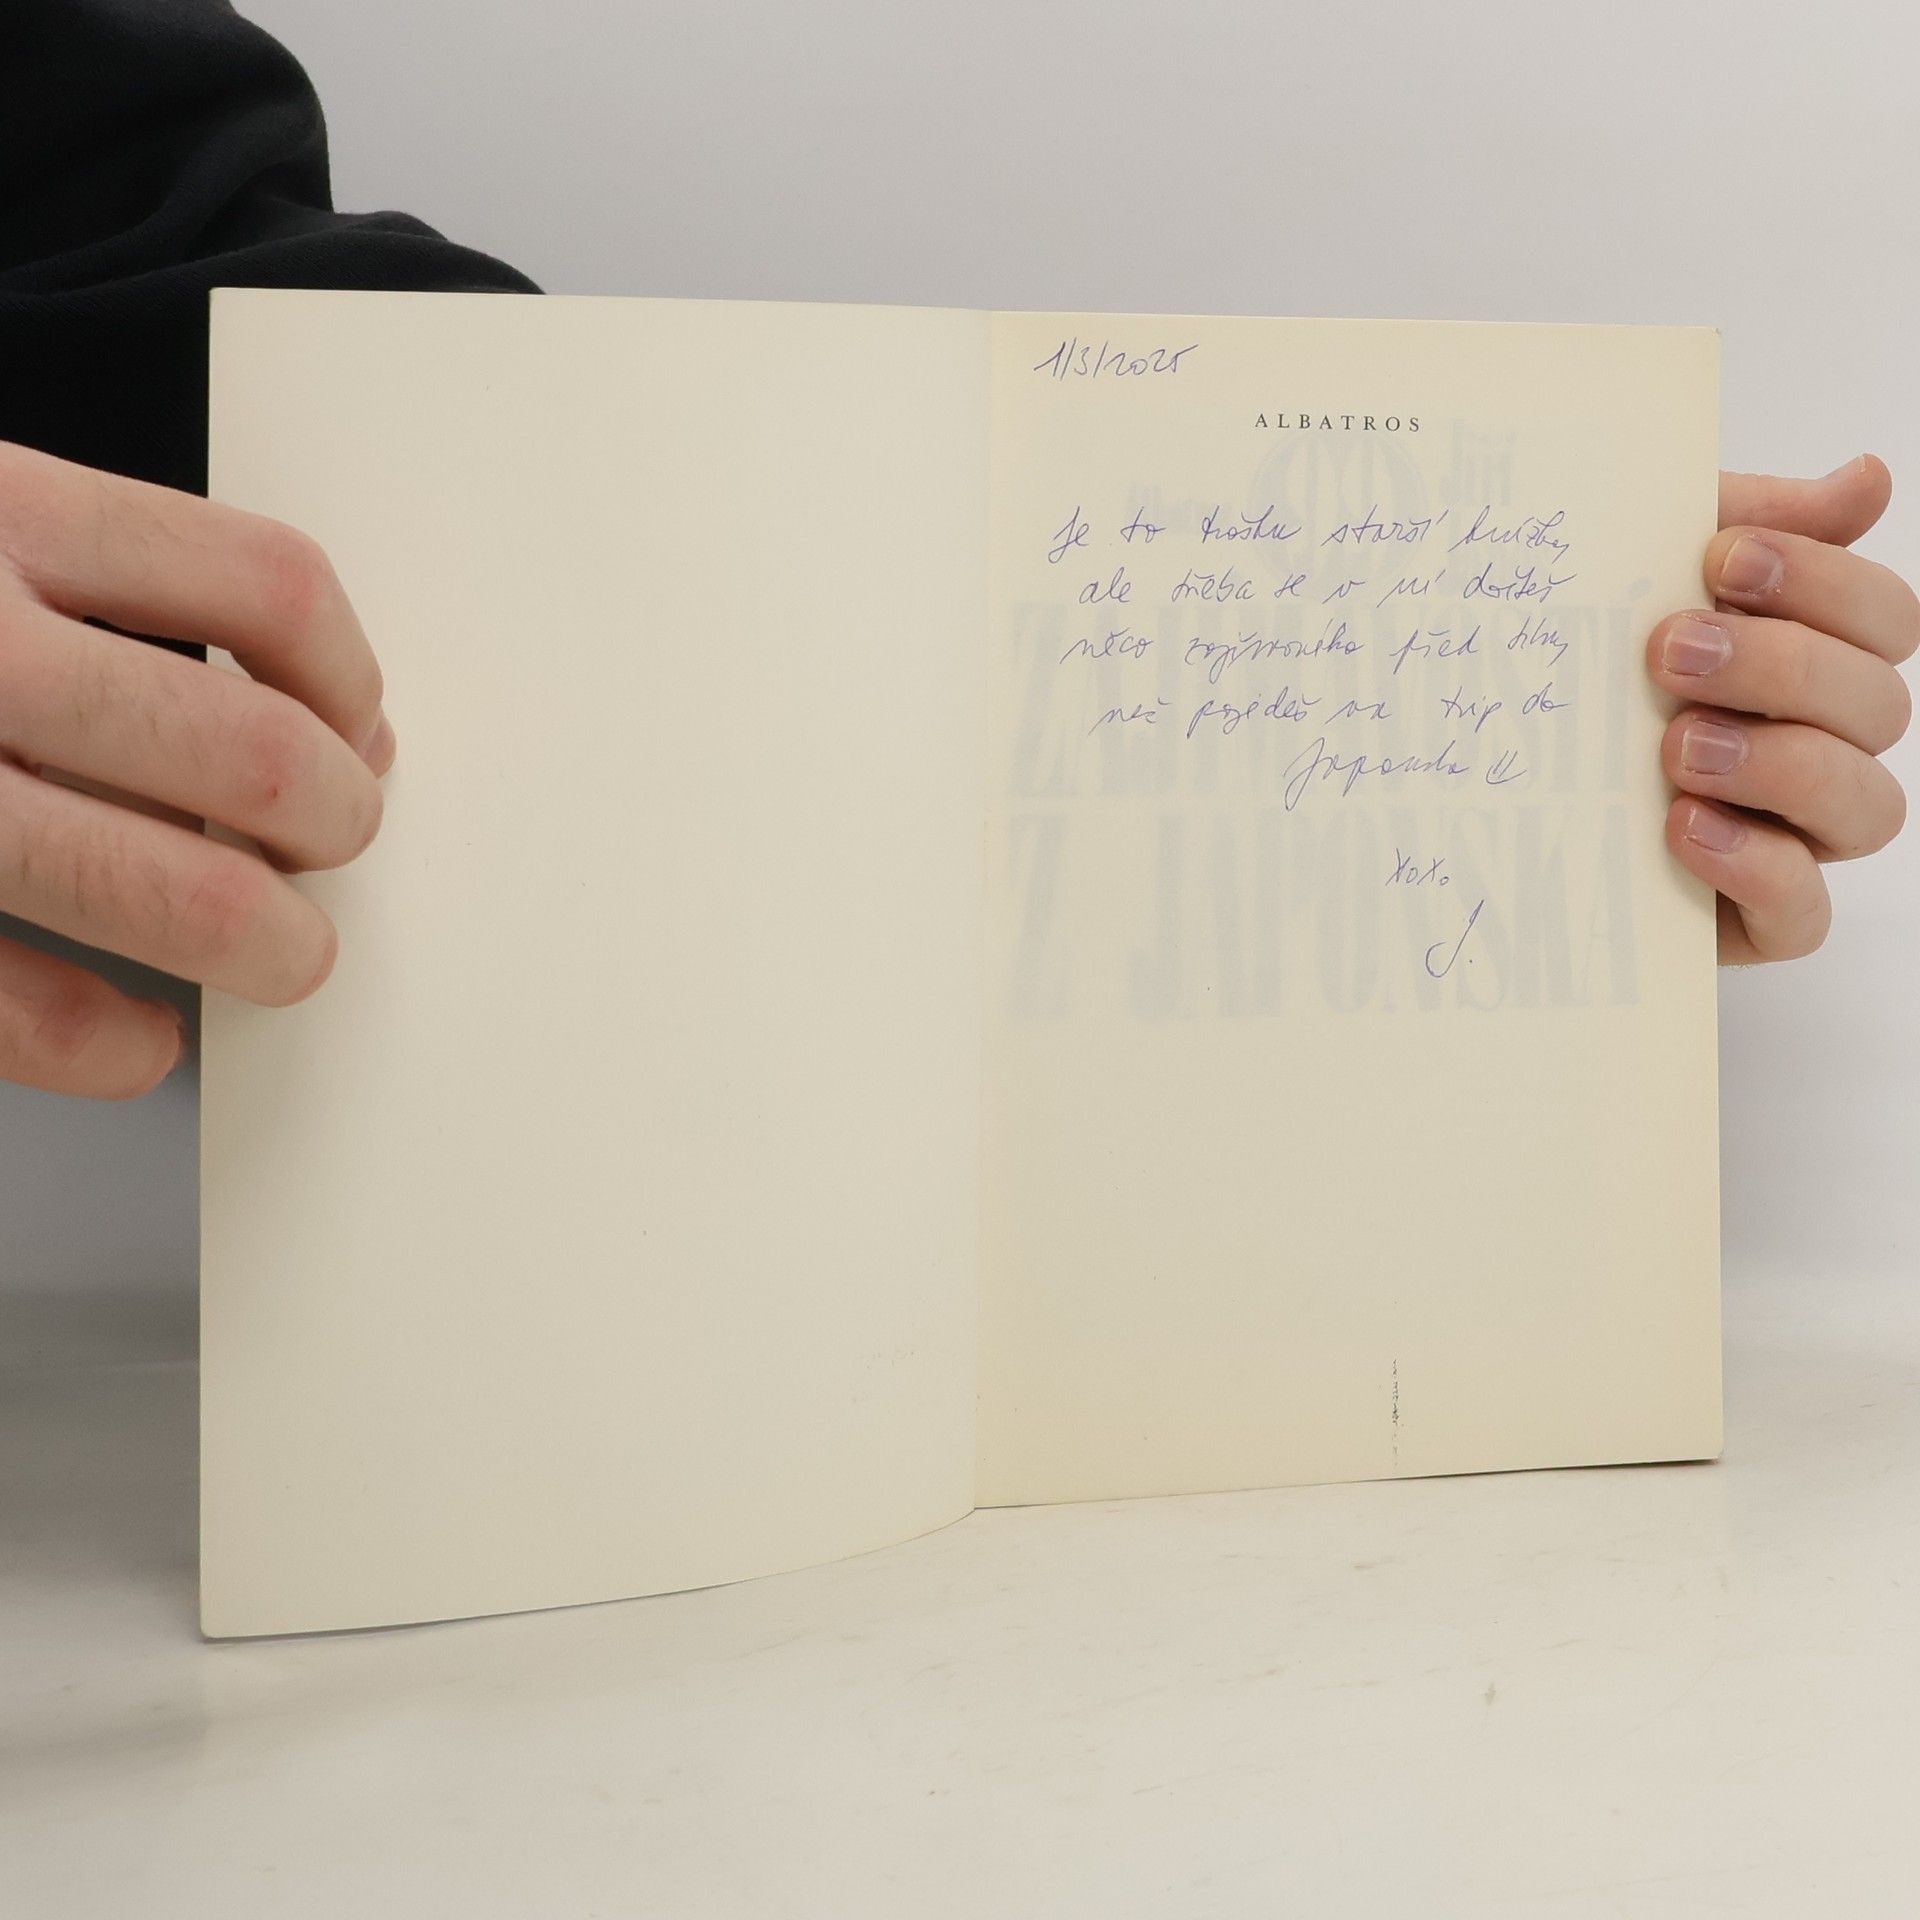 1/3/2025
ALBATROS
Je to trošku starší knížka,
ale třeba se v ní dočteš
něco zajímavého před tím,
než pojedeš na trip do
Japonska
xoxo
J.